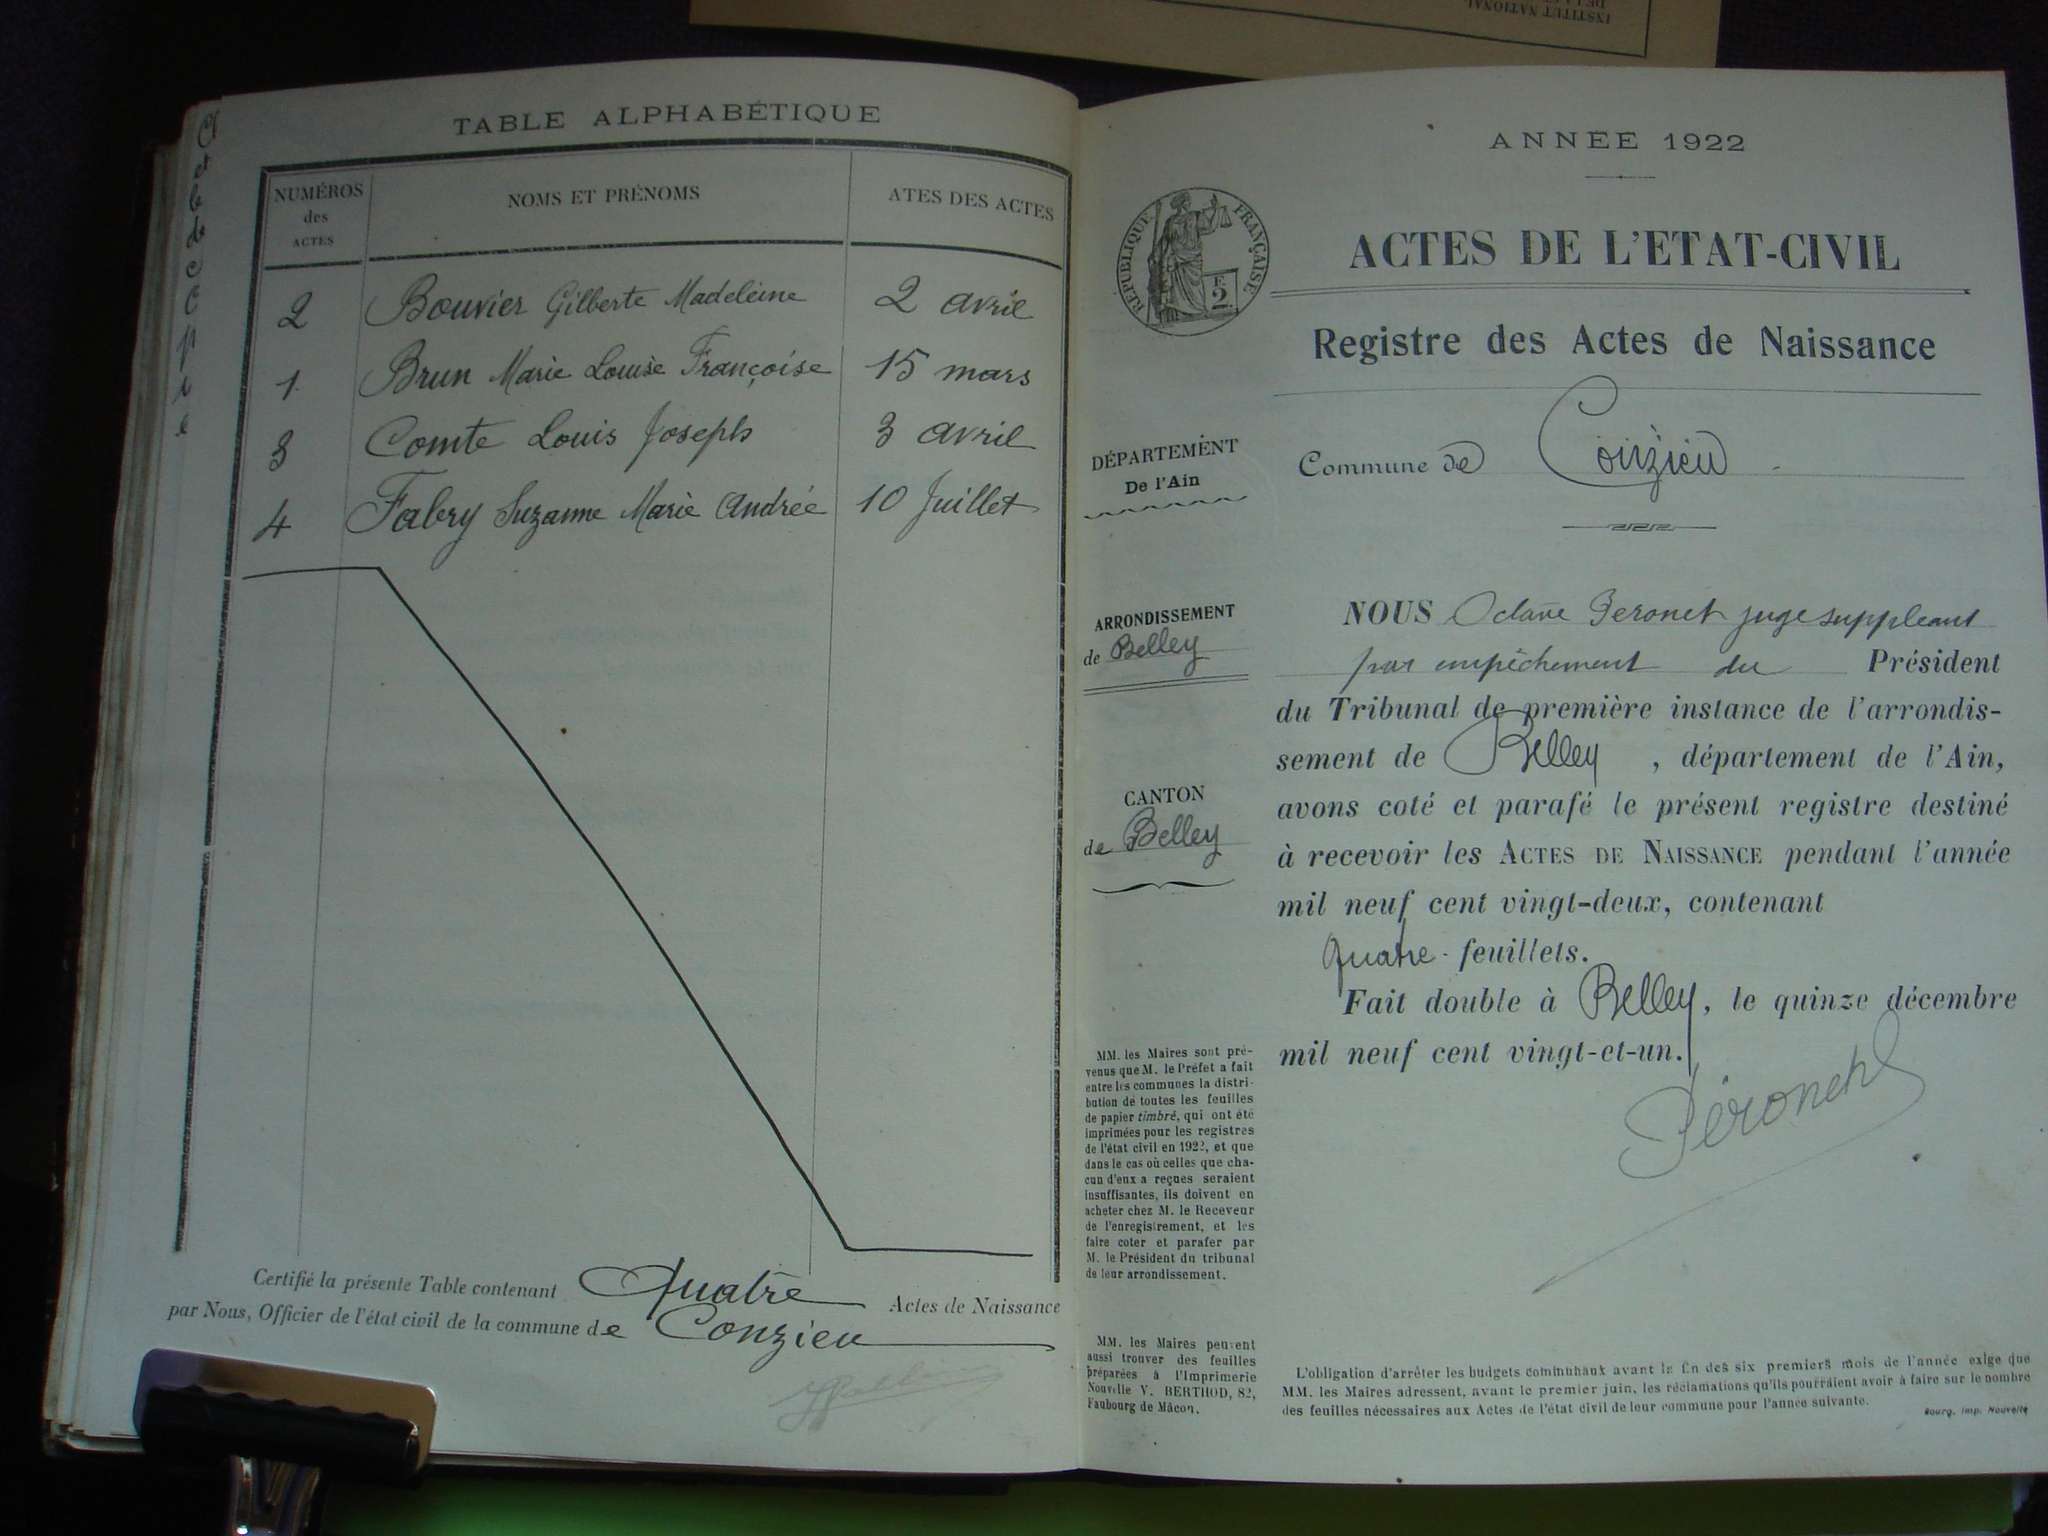 INSTITUT NATIONAL
TABLE ALPHABÉTIQUE
NUMÉROS des ACTES
NOMS ET PRÉNOMS
ATES DES ACTES
2 Bouvier Gilberte Madeleine 2 avril
1 Brun Marie Louise Françoise 15 mars
3 Comte Louis Joseph 3 avril
4 Fabry Suzanne Marie Andrée 10 Juillet
Certifié la présente Table contenant Quatre Actes de Naissance
par Nous, Officier de l'état civil de la commune de Conzieu
ANNEE 1922
RÉPUBLIQUE FRANÇAISE
F. 2
ACTES DE L'ETAT-CIVIL
Registre des Actes de Naissance
Commune de Conzieu
DÉPARTEMENT
De l'Ain
ARRONDISSEMENT
de Belley
CANTON
de Belley
MM. les Maires sont pré-
venus que M. le Préfet a fait
entre les communes la distri-
bution de toutes les feuilles
de papier timbré, qui ont été
imprimées pour les registres
de l'état civil en 1922, et que
dans le cas où celles que cha-
cun d'eux a reçues seraient
insuffisantes, ils doivent en
acheter chez M. le Receveur
de l'enregistrement, et les
faire coter et parafer par
M. le Président du tribunal
de leur arrondissement.
MM. les Maires peuvent
aussi trouver des feuilles
préparées à l'Imprimerie
Nouvelle V. BERTHOD, 82,
Faubourg de Mâcon.
NOUS Octave Peronet juge suppleant
par empêchement du Président
du Tribunal de première instance de l'arrondis-
sement de Belley, département de l'Ain,
avons coté et parafé le présent registre destiné
à recevoir les ACTES DE NAISSANCE pendant l'année
mil neuf cent vingt-deux, contenant
quatre feuillets.
Fait double à Belley, le quinze décembre
mil neuf cent vingt-et-un.
Péronet
L'obligation d'arrêter les budgets communaux avant la fin des six premiers mois de l'année exige que
MM. les Maires adressent, avant le premier juin, les réclamations qu'ils pourraient avoir à faire sur le nombre
des feuilles nécessaires aux Actes de l'état civil de leur commune pour l'année suivante.
Bourg. Imp. Nouvelle